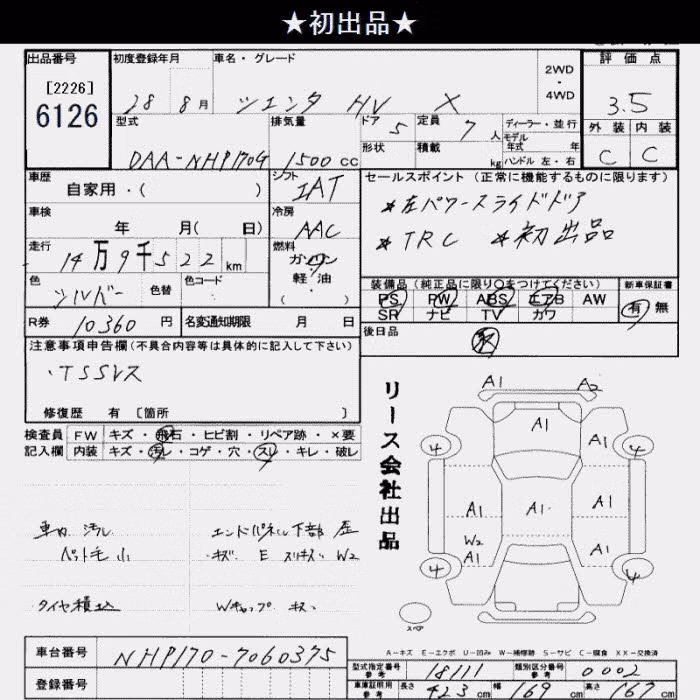 ★初出品★
出品番号
[2226]
6126
初度登録年月
28 8月
車名・グレード
シエンタ HV X
2WD
・
4WD
評価点
3.5
外装 内装
C C
型式
DAA-NHP170G
排気量
1500 cc
ドア 5
形状
定員 7 人
積載 kg
ディーラー・並行
モデル
年式 年
ハンドル 左・右
車歴
自家用・( )
シフト
IAT
セールスポイント (正常に機能するものに限ります)
*左パワースライドドア
*TRC *初出品
車検
年 月( 日)
冷房
AAC
走行
14万9千522km
燃料
ガソリン
軽・油
・( )
色
シルバー
色替
色コード
装備品(純正品に限り○をつけてください)
PS PW ABS エアB AW
SR ナビ TV カワ
新車保証書
有 無
R券 10360円
名変通知期限 月 日
後日品
注意事項申告欄(不具合内容等は具体的に記入して下さい)
・TSSレス
修復歴 有 [箇所 ]
検査員
記入欄
FW キズ・飛石・ヒビ割・リペア跡・×要
内装 キズ・汚レ・コゲ・穴・スレ・キレ・破レ
リース会社出品
A1 A2
A1
4 4
A1 A1 A1
W2
A1 A1
4 4
スペア
車内 汚レ
ペット毛 小
エンドパネル下部 歪
キズ E スリキズ W2
タイヤ積込
Wキャップ キズ
A-キズ E-エクボ U-凹み W-補修跡 S-サビ C-腐食 XX-交換済
車台番号
NHP170-7060375
登録番号
型式指定番号
参考
18111
類別区分番号
参考
0002
車庫証明用
参考
長さ 423cm 幅 169cm 高さ 167cm